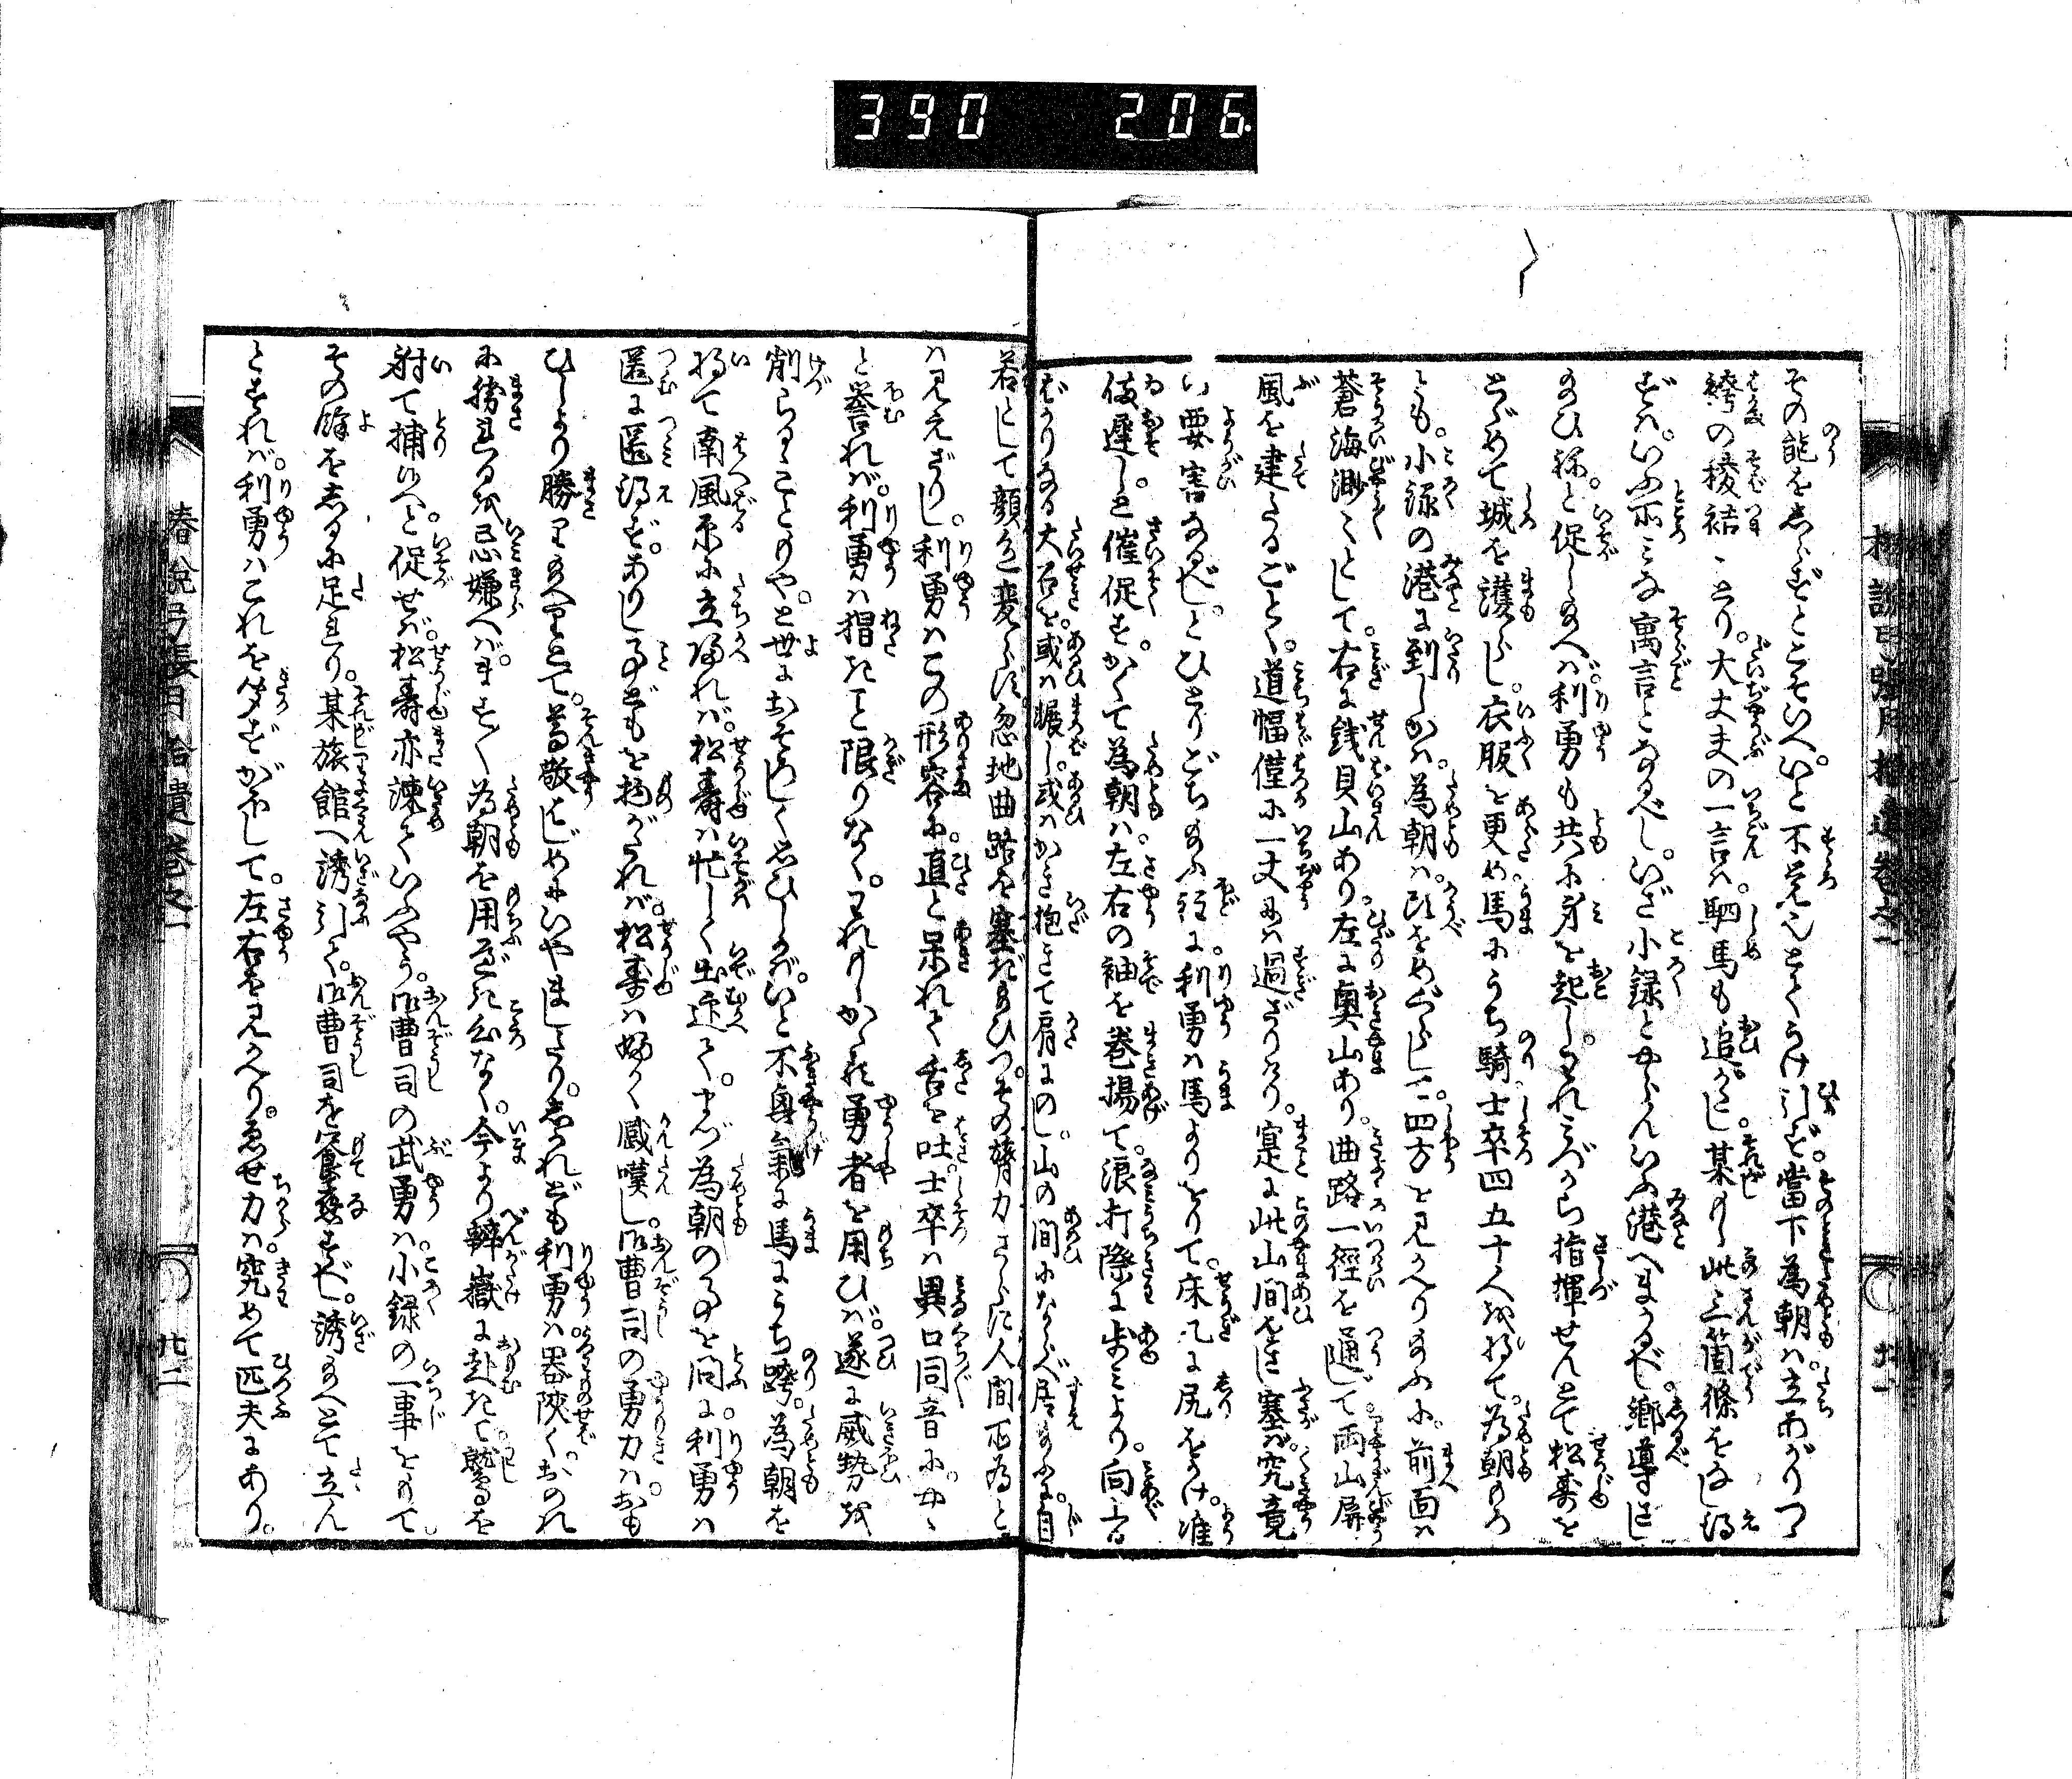 390 206
その能をしらずとこそいへ。いと不覚也とてうけ引ず。當下為朝は。立あがりつゝ
袴の稜結ゝとり。大丈夫の一言は。駟馬も追がたし。某もし此三箇條をなし得
ずは。いふ所みな寓言となるべし。いざ小録とやらんいふ港へまかるべし。郷導し
給ひねと促し給へば。利勇も共に身を起し。われみづから指揮せんとて松壽を
とゞめて城を護らし。衣服を更め馬にうち騎。士卒四五十人を将て。為朝もろ
とも。小録の港に到しかば。為朝は。頭をめぐらして。四方を見かへり給ふに。前面は
蒼海渺々として。右に銭貝山あり。左に奥山あり。曲路一徑を通じて両山屏
風を建たるごとく。道幅僅に一丈には過ざりけり。寔に此山間をさし塞ば。究竟
の要害なるべし。とひとりごち給ふ程に。利勇は馬よりをりて。床几に尻をかけ。准
備遅しと。催促す。かくて為朝は。左右の袖を巻揚て。浪打際に歩みより。向上る
ばかりなる大石を。或は踞し。或はかき抱きて肩にのし。山の間にならべ居給ふに。自
若として顔色変らず。忽地曲路を塞ぎ給ひつ。その膂力さらに人間所為と
は見えざりし。利勇はこの形容に。直と呆れて舌を吐。士卒は異口同音に。やゝ
と誉れば。利勇は猜きこと限りなく。われもしかゝる勇者を用ひば。遂に威勢を
削らるゝことやと世におそろしく思ひしかば。いと不興氣に馬にうち跨。為朝を
将て南風原に立帰れば。松壽は忙しく出迎て。まづ為朝の事を問に。利勇は
匿に匿得ず。ありし事どもを物がたれば。松壽は妤く感嘆し。御曹司の勇力は。おも
ひしより勝り給へりとて。尊敬はじめにいやましたり。しかれども利勇は器陜く。おのれ
に勝れるを忌嫌へば。ますます為朝を用る心なく。今より辨嶽に赴きて鷲を
射て捕給へと。促せば。松壽亦諫ていふやう。御曹司の武勇は。小録の一事をもて。
その餘をしるに足れり。某旅館へ誘引て。御曹司を饗應すべし。誘給へとて立ん
とすれば。利勇はこれを聞ずがほして。左右を見かへり。ゑせ力は。究めて匹夫にあり。
椿説弓張月拾遺巻之一
廿二